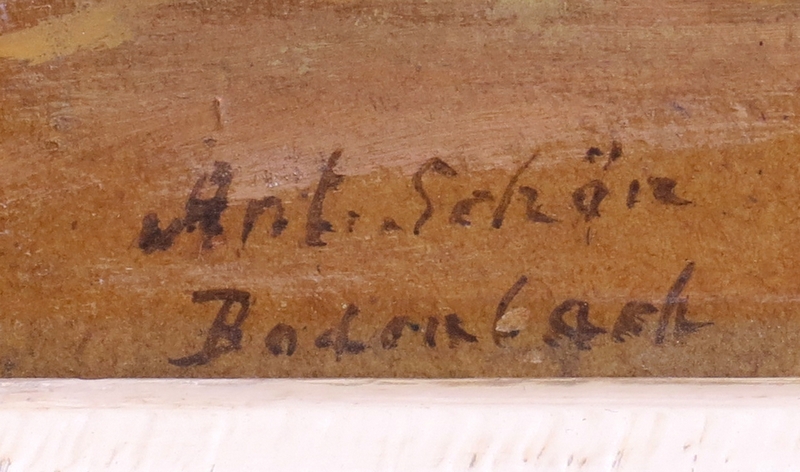 Ant. Schön
Bodenbach